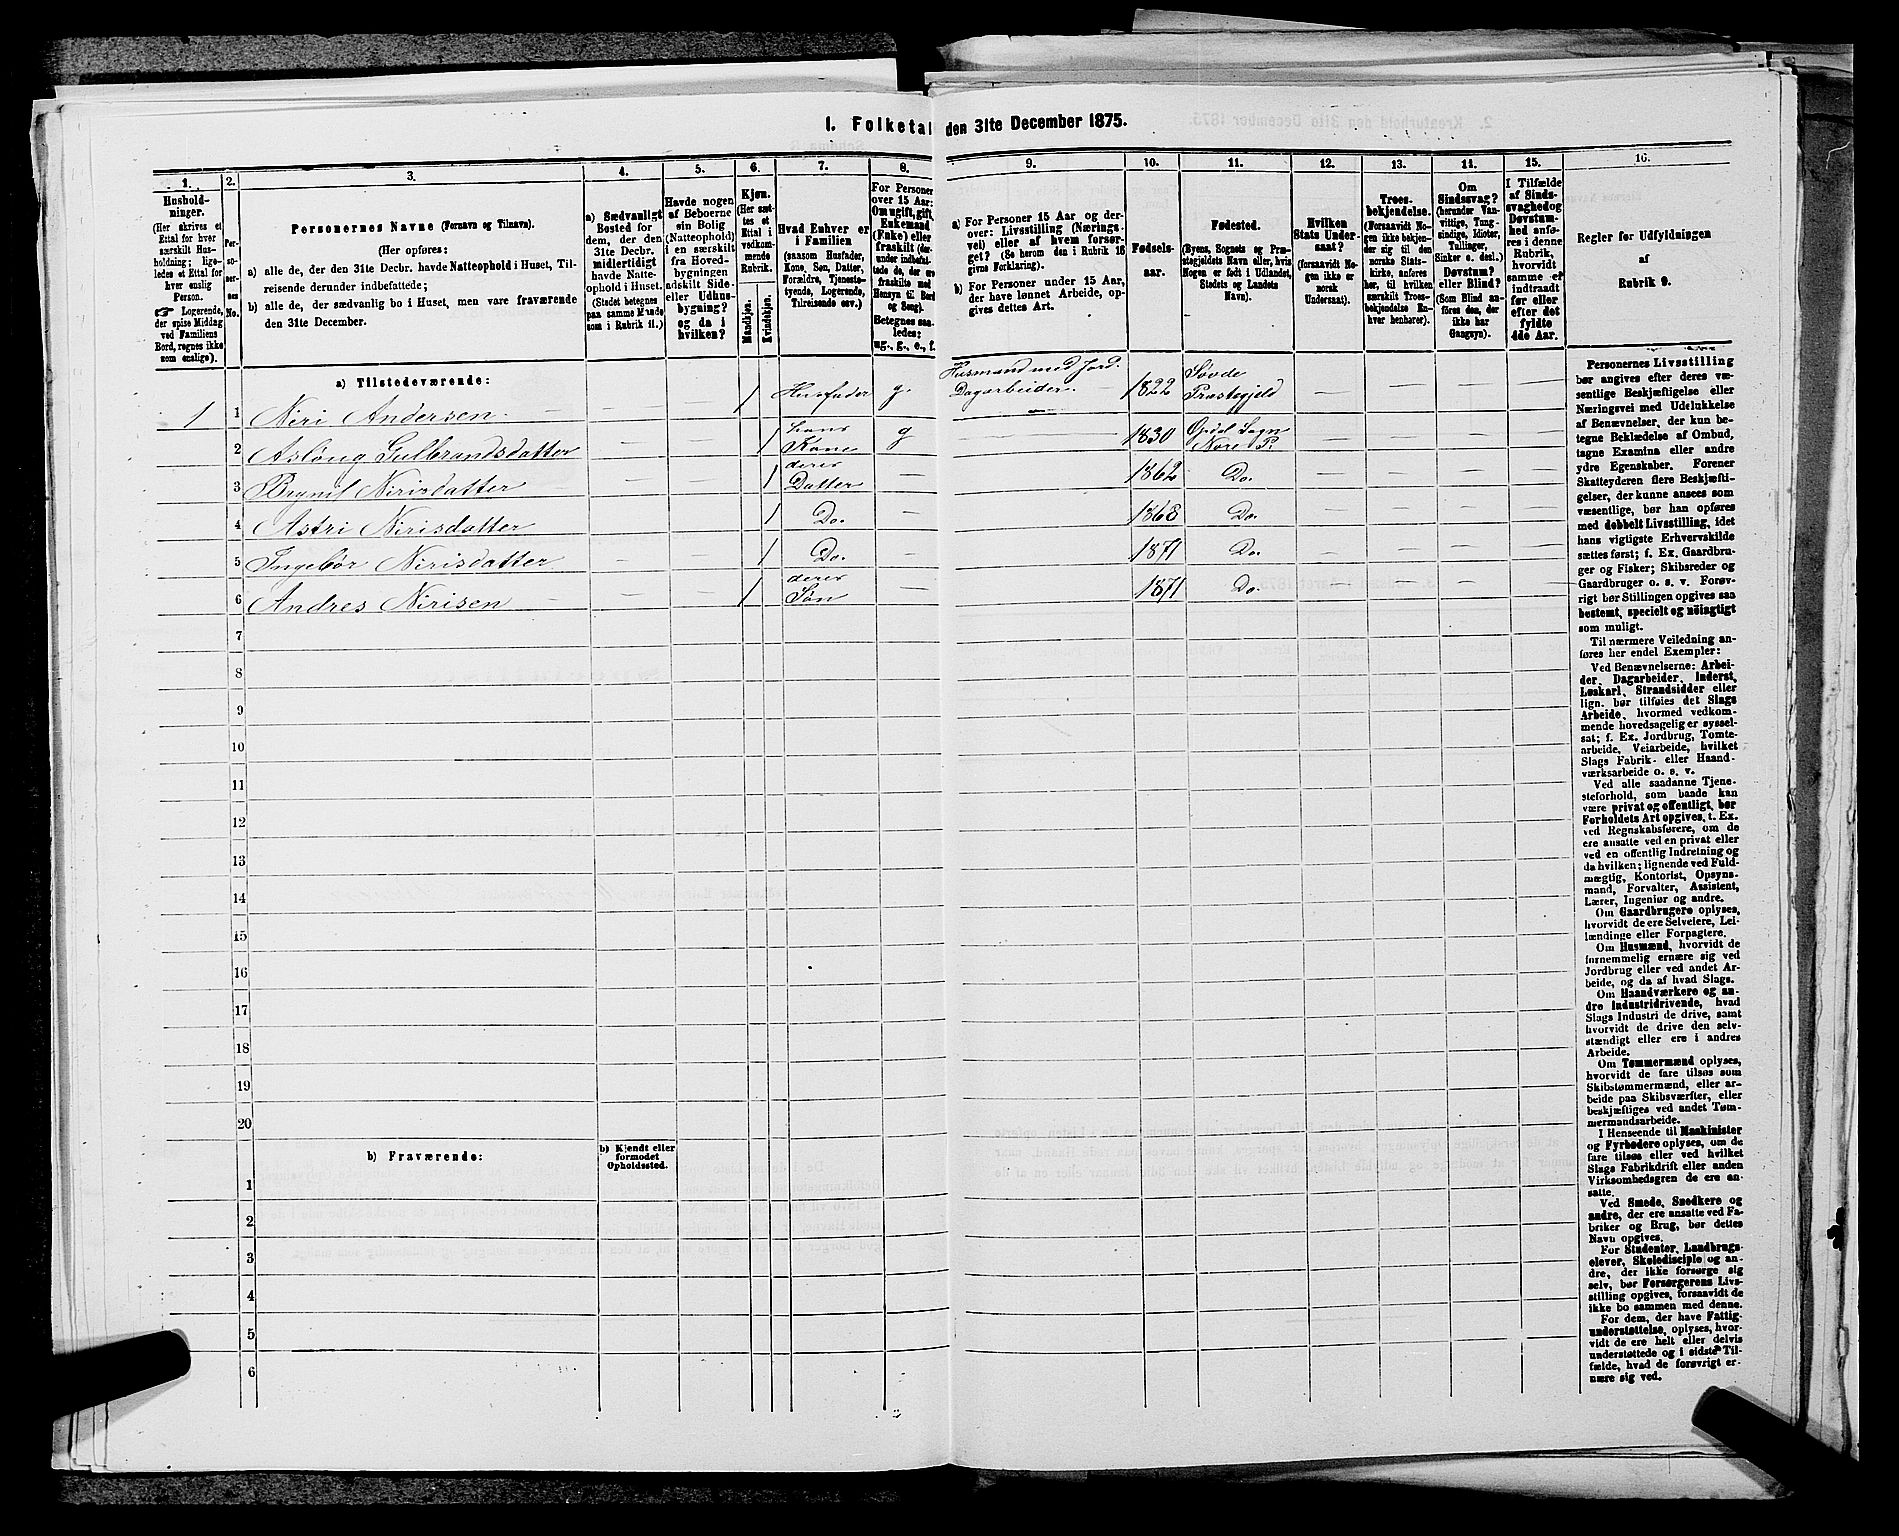 1. Folketal den 31te December 1875.
1.
Hushold-
ninger.
(Her skrives et
Ettal for hver
særskilt Hus-
holdning; lige-
ledes et Ettal for
hver enslig
Person.
☞ Logerende,
der spise Middag
ved Familiens
Bord, regnes ikke
som enslige).
2.
Per-
so-
ner-
nes
No.
3.
Personernes Navne (Fornavn og Tilnavn).
(Her opføres:
a) alle de, der den 31te Decbr. havde Natteophold i Huset, Til-
reisende derunder indbefattede;
b) alle de, der sædvanlig bo i Huset, men vare fraværende
den 31te December.
4.
a) Sædvanligt
Bosted for
dem, der den
31te Decbr.
midlertidigt
havde Natte-
ophold i Huset.
(Stedet betegnes
paa samme Maade
som i Rubrik 11.)
5.
Havde nogen
af Beboerne
sin Bolig
(Natteophold)
i en særskilt
fra Hoved-
bygningen
adskilt Side-
eller Udhus-
bygning?
og da i
hvilken?
6.
Kjøn.
(Her sæt-
tes et
Ettal i
vedkom-
mende
Rubrik.
Mandkjøn.
Kvindekjøn.
7.
Hvad Enhver er
i Familien
(saasom Husfader,
Kone, Søn, Datter,
Forældre, Tjeneste-
tyende, Logerende,
Tilreisende osv.)
8.
For Personer
over 15 Aar:
Om ugift, gift,
Enkemand
(Enke) eller
fraskilt (der-
under indbefat-
tede de, der ere
fraskilte med
Hensyn til Bord
og Seng).
Betegnes saa-
ledes:
ug., g., e., f.
9.
a) For Personer 15 Aar og der-
over: Livsstilling (Nærings-
vei) eller af hvem forsør-
get? (Se herom den i Rubrik 16
givne Forklaring).
b) For Personer under 15 Aar,
der have lønnet Arbeide, op-
gives dettes Art.
10.
Fødsels-
aar.
11.
Fødested.
(Byens, Sognets og Præ-
stegjeldets Navn eller, hvis
Nogen er født i Udlandet,
Stedets og Landets
Navn).
12.
Hvilken
Stats Under-
saat?
(forsaavidt No-
gen ikke er
norsk
Undersaat).
13.
Troes-
bekjendelse.
(Forsaavidt No-
gen ikke bekjen-
der sig til den
norske Stats-
kirke, anføres
her, til hvilken
særskilt Troes-
bekjendelse En-
hver henhører).
14.
Om
Sindssvag?
(herunder Van-
vittige, Tung-
sindige, Idioter,
Tullinger,
Sinker o. desl.)
Døvstum?
eller Blind?
(Som Blind an-
føres den, der
ikke har
Gangsyn).
15.
I Tilfælde
af Sinds-
svaghed og
Døvstum-
hed anfø-
res i denne
Rubrik,
hvorvidt
samme er
indtraadt
før eller
efter det
fyldte
4de Aar.
16.
Regler før Udfyldningen
af
Rubrik 9.
a) Tilstedeværende:
1 1 Niri Andersen — — — 1 Husfader g. Husmand med Jord. Dagarbeider. 1822 Søvde Præstegjeld — — — —
2 Aslöug Gulbrandsdatter — — 1 hans Kone g — 1830 Opdal Sogn Nore P. — — — —
3 Brynil Nirisdatter — — 1 deres Datter — 1862 Do. — — — —
4 Astri Nirisdatter — — 1 Do. — 1868 Do. — — — —
5 Ingebör Nirisdatter — — 1 Do. — 1871 Do. — — — —
6 Andres Nirisen — — — 1 deres Søn — 1871 Do. — — — —
7
8
9
10
11
12
13
14
15
16
17
18
19
20
b) Fraværende:
b) Kjendt eller
formodet
Opholdssted.
1
2
3
4
5
6
Personernes Livsstilling
bør angives efter deres væ-
sentlige Beskjæftigelse eller
Næringsvei med Udelukkelse
af Benævnelser, der kun be-
tegne Beklædelse af Ombud,
tagne Examina eller andre
ydre Egenskaber. Forener
Skatteyderen flere Beskjæfti-
gelser, der kunne ansees som
væsentlige, bør han opføres
med dobbelt Livsstilling, idet
hans vigtigste Erhvervskilde
sættes først; f. Ex. Gaardbru-
ger og Fisker; Skibsreder og
Gaardbruger o. s. v. Forøv-
rigt bør Stillingen opgives saa
bestemt, specielt og nöiagtigt
som muligt.
Til nærmere Veiledning an-
føres her endel Exempler:
Ved Benævnelserne: Arbei-
der, Dagarbeider, Inderst,
Løskarl, Strandsidder eller
lign. bør tilføies det Slags
Arbeide, hvormed vedkom-
mende hovedsagelig er syssel-
sat; f. Ex. Jordbrug, Tomte-
arbeide, Veiarbeide, hvilket
Slags Fabrik- eller Haand-
værksarbeide o. s. v.
Ved alle saadanne Tjene-
steforhold, som baade kan
være privat og offentligt, bør
Forholdets Art opgives, t. Ex.
ved Regnskabsførere, om de
ere ansatte ved en privat eller
ved en offentlig Indretning og
da hvilken; lignende ved Fuld-
mægtig, Kontorist, Opsyns-
mand, Forvalter, Assistent,
Lærer, Ingeniør og andre.
Om Gaardbrugere oplyses,
hvorvidt de ere Selveiere, Lei-
lændinge eller Forpagtere.
Om Husmænd, hvorvidt de
fornemmelig ernære sig ved
Jordbrug eller ved andet Ar-
beide, og da af hvad Slags.
Om Haandværkere og an-
dre Industridrivende, hvad
Slags Industri de drive, samt
hvorvidt de drive den selv-
stændigt eller ere i andres
Arbeide.
Om Tømmermænd oplyses,
hvorvidt de fare tilsøs som
Skibstømmermænd, eller ar-
beide paa Skibsværfter, eller
beskjæftiges ved andet Tøm-
mermandsarbeide.
I Henseende til Maskinister
og Fyrbødere oplyses, om de
fare tilsøs eller ved hvilket
Slags Fabrikdrift eller anden
Virksomhedsgren de ere an-
satte.
Ved Smede, Snedkere og
andre, der ere ansatte ved Fa-
briker og Brug, bør dettes
Navn opgives.
For Studenter, Landbrugs-
elever, Skoledisciple og an-
dre, der ikke forsørge sig
selv, bør Forsørgerens Livs-
stilling opgives, forsaavidt de
ikke bo sammen med denne.
For dem, der have Fattig-
understøttelse, oplyses, hvor-
vidt de ere helt eller delvis
understøttede og i sidste Til-
fælde, hvad de forøvrigt er-
nære sig ved.